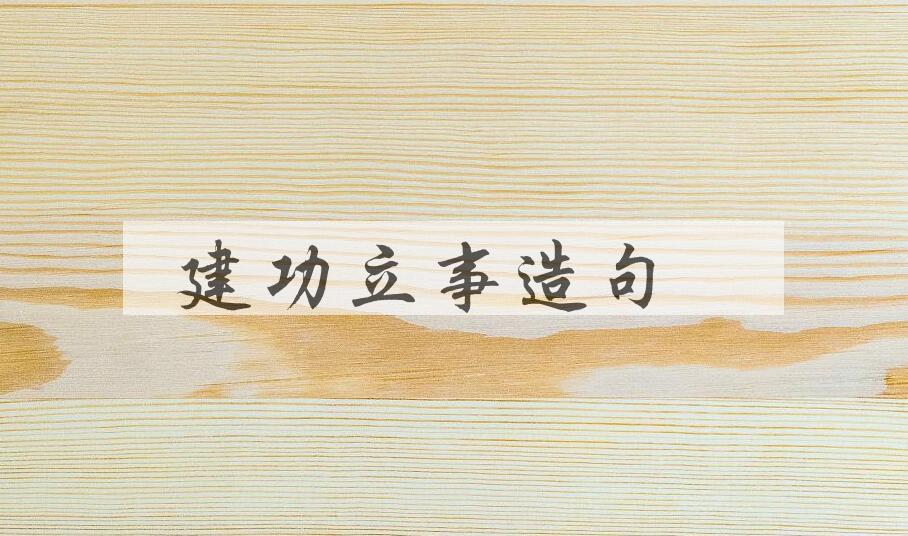 建功立事造句